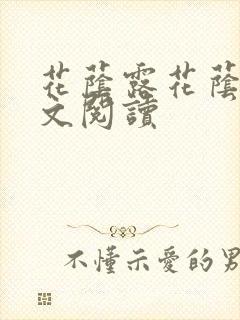 花蔭露花蔭
文閱讀
不懂示愛的男